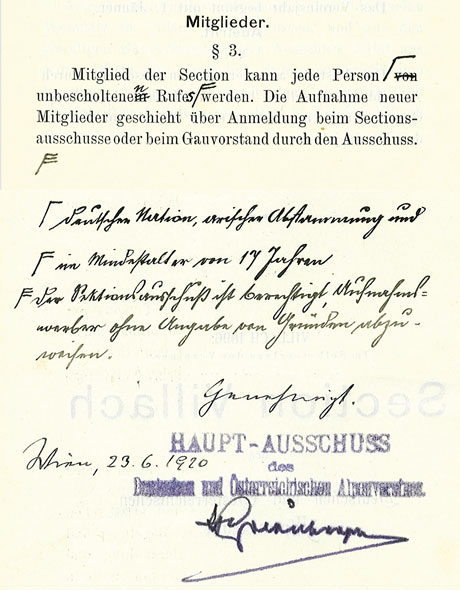 Mitglieder.
§ 3.
Mitglied der Section kann jede Person ┌ von
unbescholtenem n Rufes F werden. Die Aufnahme neuer
Mitglieder geschieht über Anmeldung beim Sections-
ausschusse oder beim Gauvorstand durch den Ausschuss.
F
┌ deutscher Nation, arischer Abstammung und
F im Mindestalter von 17 Jahren
F Der Sektionsausschuß ist berechtigt, Aufnahms-
werber ohne Angabe von Gründen abzu-
weisen.
Genehmigt.
HAUPT-AUSSCHUSS
des
Deutschen und Österreichischen Alpenvereins.
Wien, 23.6.1920
Section Villach